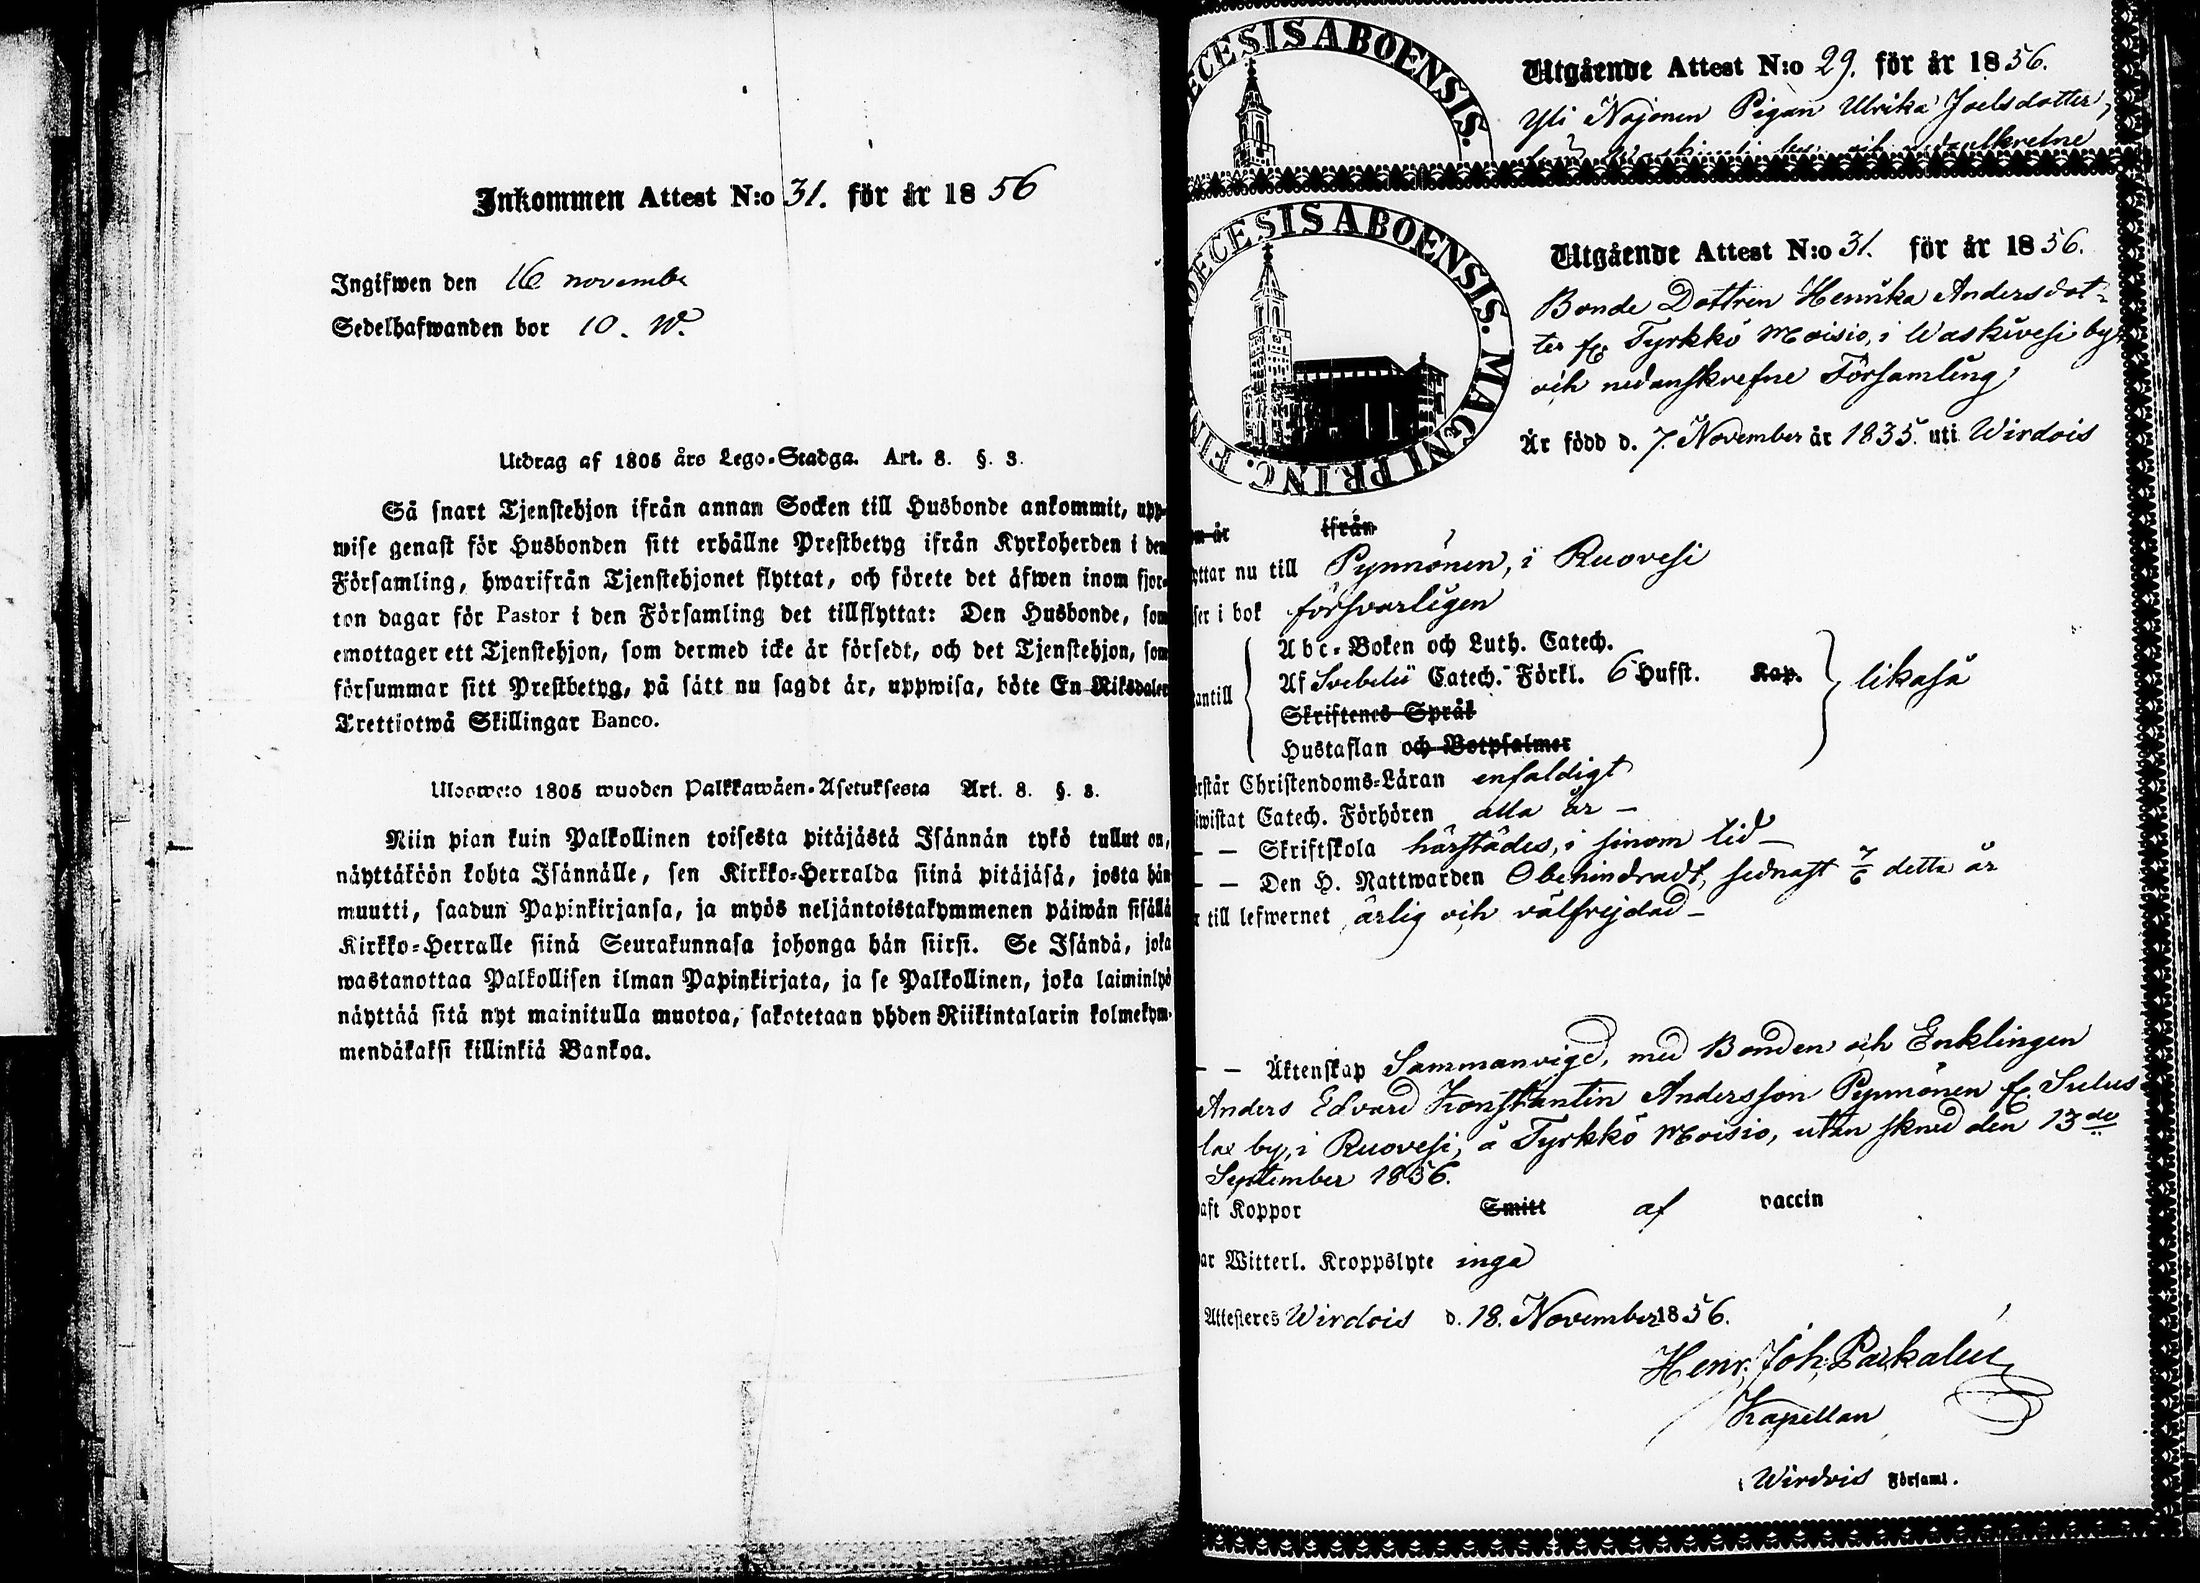 Inkommen Attest N:o 31. för år 1856
Ingifwen den 16 novembr
Sedelhafwanden bor 10. W.
Utdrag af 1805 års Lego-Stadga. Art. 8. §. 3.
Så snart Tjenstehjon ifrån annan Socken till Husbonde ankommit, upp-
wise genast för Husbonden sitt erhållne Prestbetyg ifrån Kyrkoherden i den
Församling, hwarifrån Tjenstehjonet flyttat, och förete det äfwen inom fjor-
ton dagar för Pastor i den Församling det tillflyttat: Den Husbonde, som
emottager ett Tjenstehjon, som dermed icke är försedt, och det Tjenstehjon, som
försummar sitt Prestbetyg, på sätt nu sagdt är, uppwisa, böte En Riksdaler
Trettiotwå Skillingar Banco.
Ulosweto 1805 wuoden Palkkawäen-Asetuksesta Art. 8. §. 3.
Niin pian kuin Palkollinen toisesta pitäjästä Isännän tykö tullut on,
näyttäköön kohta Isännälle, sen Kirkko-Herralda siinä pitäjäsä, josta hän
muutti, saadun Papinkirjansa, ja myös neljäntoistakymmenen päiwän sisällä
Kirkko-Herralle siinä Seurakunnasa johonga hän siirsi. Se Isändä, joka
wastanottaa Palkollisen ilman Papinkirjata, ja se Palkollinen, joka laiminlyö
näyttää sitä nyt mainitulla muotoa, sakotetaan yhden Riikintalarin kolmekym-
mendäkaksi killinkiä Bankoa.
ECESIS ABOENSIS.
Utgående Attest N:o 29. för år 1856.
Yli Nojonen Pigan Ulrika Joelsdotter,
DECESIS ABOENSIS. MAGNI PRINC. FIN
Utgående Attest N:o 31. för år 1856.
Bonde Dottren Henrika Andersdot-
ter fr. Tyrkkö Moisio, i Waskivesi by
och nedanskrefne Församling,
Är född d. 7. November år 1835. uti Wirdois
m år ifrån
yttar nu till Pynnönen, i Ruovesi
ser i bok försvarligen
antill
Abc-Boken och Luth. Catech.
Af Svebelii Catech. Förkl. 6 Hufst. Kap. likaså
Skriftenes Språk
Hustaflan och Botpsalmer
rstår Christendoms-Läran enfaldigt
iwistat Catech. Förhören alla år —
— — Skriftskola härstädes, i sinom tid —
— — Den H. Nattwarden Obehindradt, sednast 7/6 detta år
r till lefwernet ärlig och välfrejdad —
— — Äktenskap Sammanvigd, med Bonden och Enklingen
Anders Edvard Konstantin Andersson Pynnönen fr. Sulus
lax by, i Ruovesi, å Tyrkkö Moisio, utan skned den 13de
September 1856.
aft Koppor Smitt af vaccin
ar Witterl. Kroppslyte inga
Attesteres Wirdois d. 18. November 1856.
Henr. Joh. Parkalin
Kapellan
i Wirdois Församl.